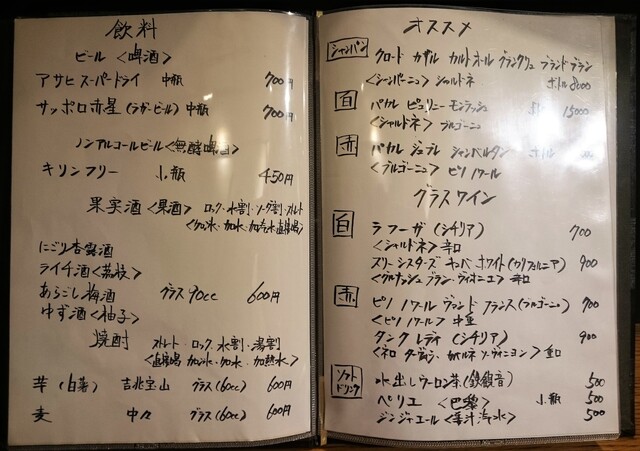 飲料
ビール <啤酒>
アサヒスーパードライ 中瓶 700円
サッポロ赤星 (ラガービール) 中瓶 700円
ノンアルコールビール <無酵啤酒>
キリンフリー 小瓶 450円
果実酒 <果酒> ロック・水割・ソーダ割・ストレート
にごり杏露酒
ライチ酒 <荔枝>
あらごし梅酒 グラス90cc 600円
ゆず酒 <柚子>
焼酎 ストレート・ロック・水割・湯割
芋 (白薯) 吉兆宝山 グラス(60cc) 600円
麦 中々 グラス(60cc) 600円
オススメ
シャンパン クロード カザル カルトオール グランクリュ ブランドブラン
<シャンパーニュ> シャルドネ ボトル 8000
白 パカレ ピュリニーモンラッシェ 15000
<シャルドネ> ブルゴーニュ
赤 パカレ ジュブレ シャンベルタン ボトル
<ブルゴーニュ> ピノノワール
グラスワイン
白 ラ フーガ (シチリア) 700
<シャルドネ> 辛口
スリーシスターズ キュベホワイト (カリフォルニア) 900
<グルナッシュブラン・ヴィオニエ> 辛口
赤 ピノノワール グランド フランス (ブルゴーニュ) 700
<ピノノワール> 中重
タンクレディ (シチリア) 900
<ネロ ダーヴォラ・カベルネ ソーヴィニヨン> 重口
ソフトドリンク 水出しウーロン茶 (鉄観音) 500
ペリエ <巴黎> 小瓶 500
ジンジャエール <姜汁汽水> 500